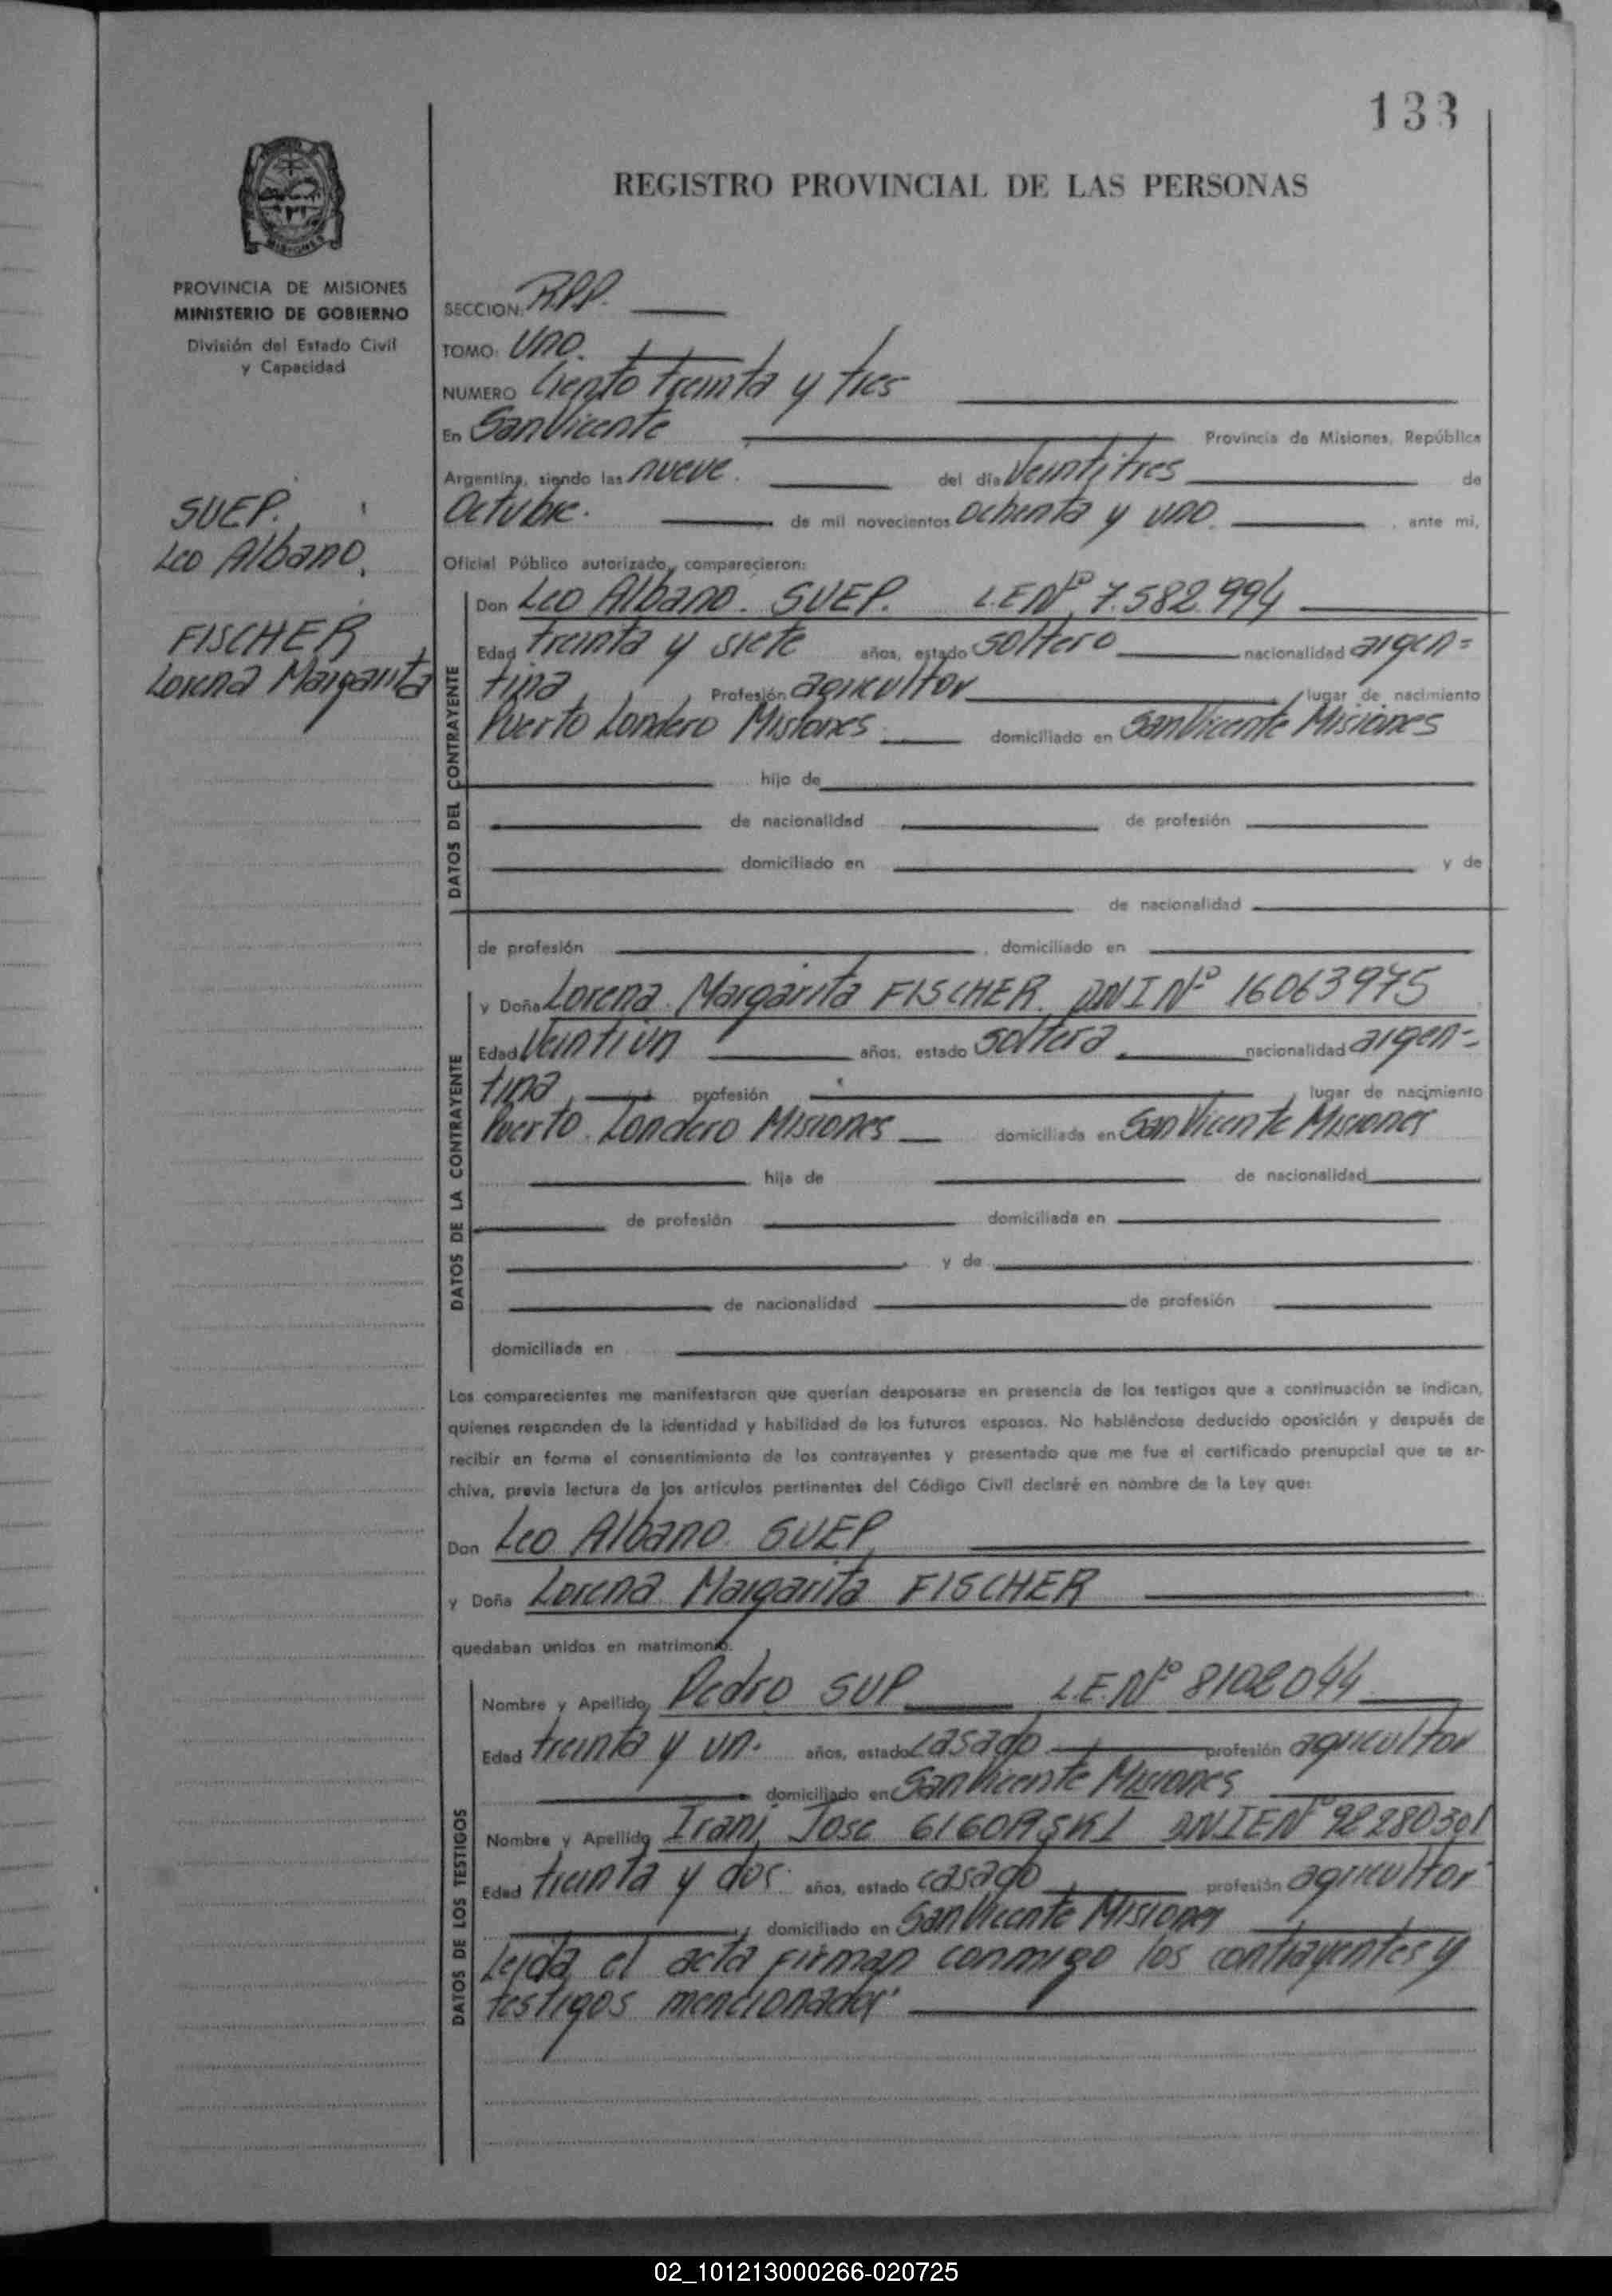 133
REGISTRO PROVINCIAL DE LAS PERSONAS
MISIONES
PROVINCIA DE MISIONES
MINISTERIO DE GOBIERNO
División del Estado Civil
y Capacidad
SUEP.
Leo Albano.
FISCHER
Lorena Margarita
SECCION: R.P.P.
TOMO: Uno.
NUMERO Ciento treinta y tres
En San Vicente Provincia de Misiones, República
Argentina, siendo las nueve. del día Veintitres de
Octubre. de mil novecientos Ochenta y uno. , ante mi,
Oficial Público autorizado, comparecieron:
DATOS DEL CONTRAYENTE
Don Leo Albano. SUEP. L.E.Nº 7.582.994
Edad treinta y siete años, estado Soltero nacionalidad argen=
tina, Profesión agricultor, lugar de nacimiento
Puerto Londero Misiones domiciliado en San Vicente Misiones
hijo de
de nacionalidad de profesión
domiciliado en y de
de nacionalidad
de profesión , domiciliado en
DATOS DE LA CONTRAYENTE
y Doña Lorena. Margarita FISCHER. DNI Nº 16063975
Edad Veintiún años, estado Soltera nacionalidad argen=
tina, profesión , lugar de nacimiento
Puerto Londero Misiones domiciliada en San Vicente Misiones
hija de de nacionalidad
de profesión domiciliada en
y de
de nacionalidad de profesión
domiciliada en
Los comparecientes me manifestaron que querían desposarse en presencia de los testigos que a continuación se indican,
quienes responden de la identidad y habilidad de los futuros esposos. No habiéndose deducido oposición y después de
recibir en forma el consentimiento de los contrayentes y presentado que me fue el certificado prenupcial que se ar-
chiva, previa lectura de los artículos pertinentes del Código Civil declaré en nombre de la Ley que:
Don Leo Albano. SUEP,
y Doña Lorena Margarita FISCHER
quedaban unidos en matrimonio.
DATOS DE LOS TESTIGOS
Nombre y Apellido, Pedro SUP L.E.Nº 8102044
Edad treinta y un. años, estado Casado profesión agricultor
domiciliado en San Vicente Misiones
Nombre y Apellido Irani Jose DNIEN° 92280301
Edad treinta y dos. años, estado Casado profesión agricultor
domiciliado en San Vicente Misiones
Leida el acta firman conmigo los contrayentes y
testigos mencionados.
02_101213000266-020725